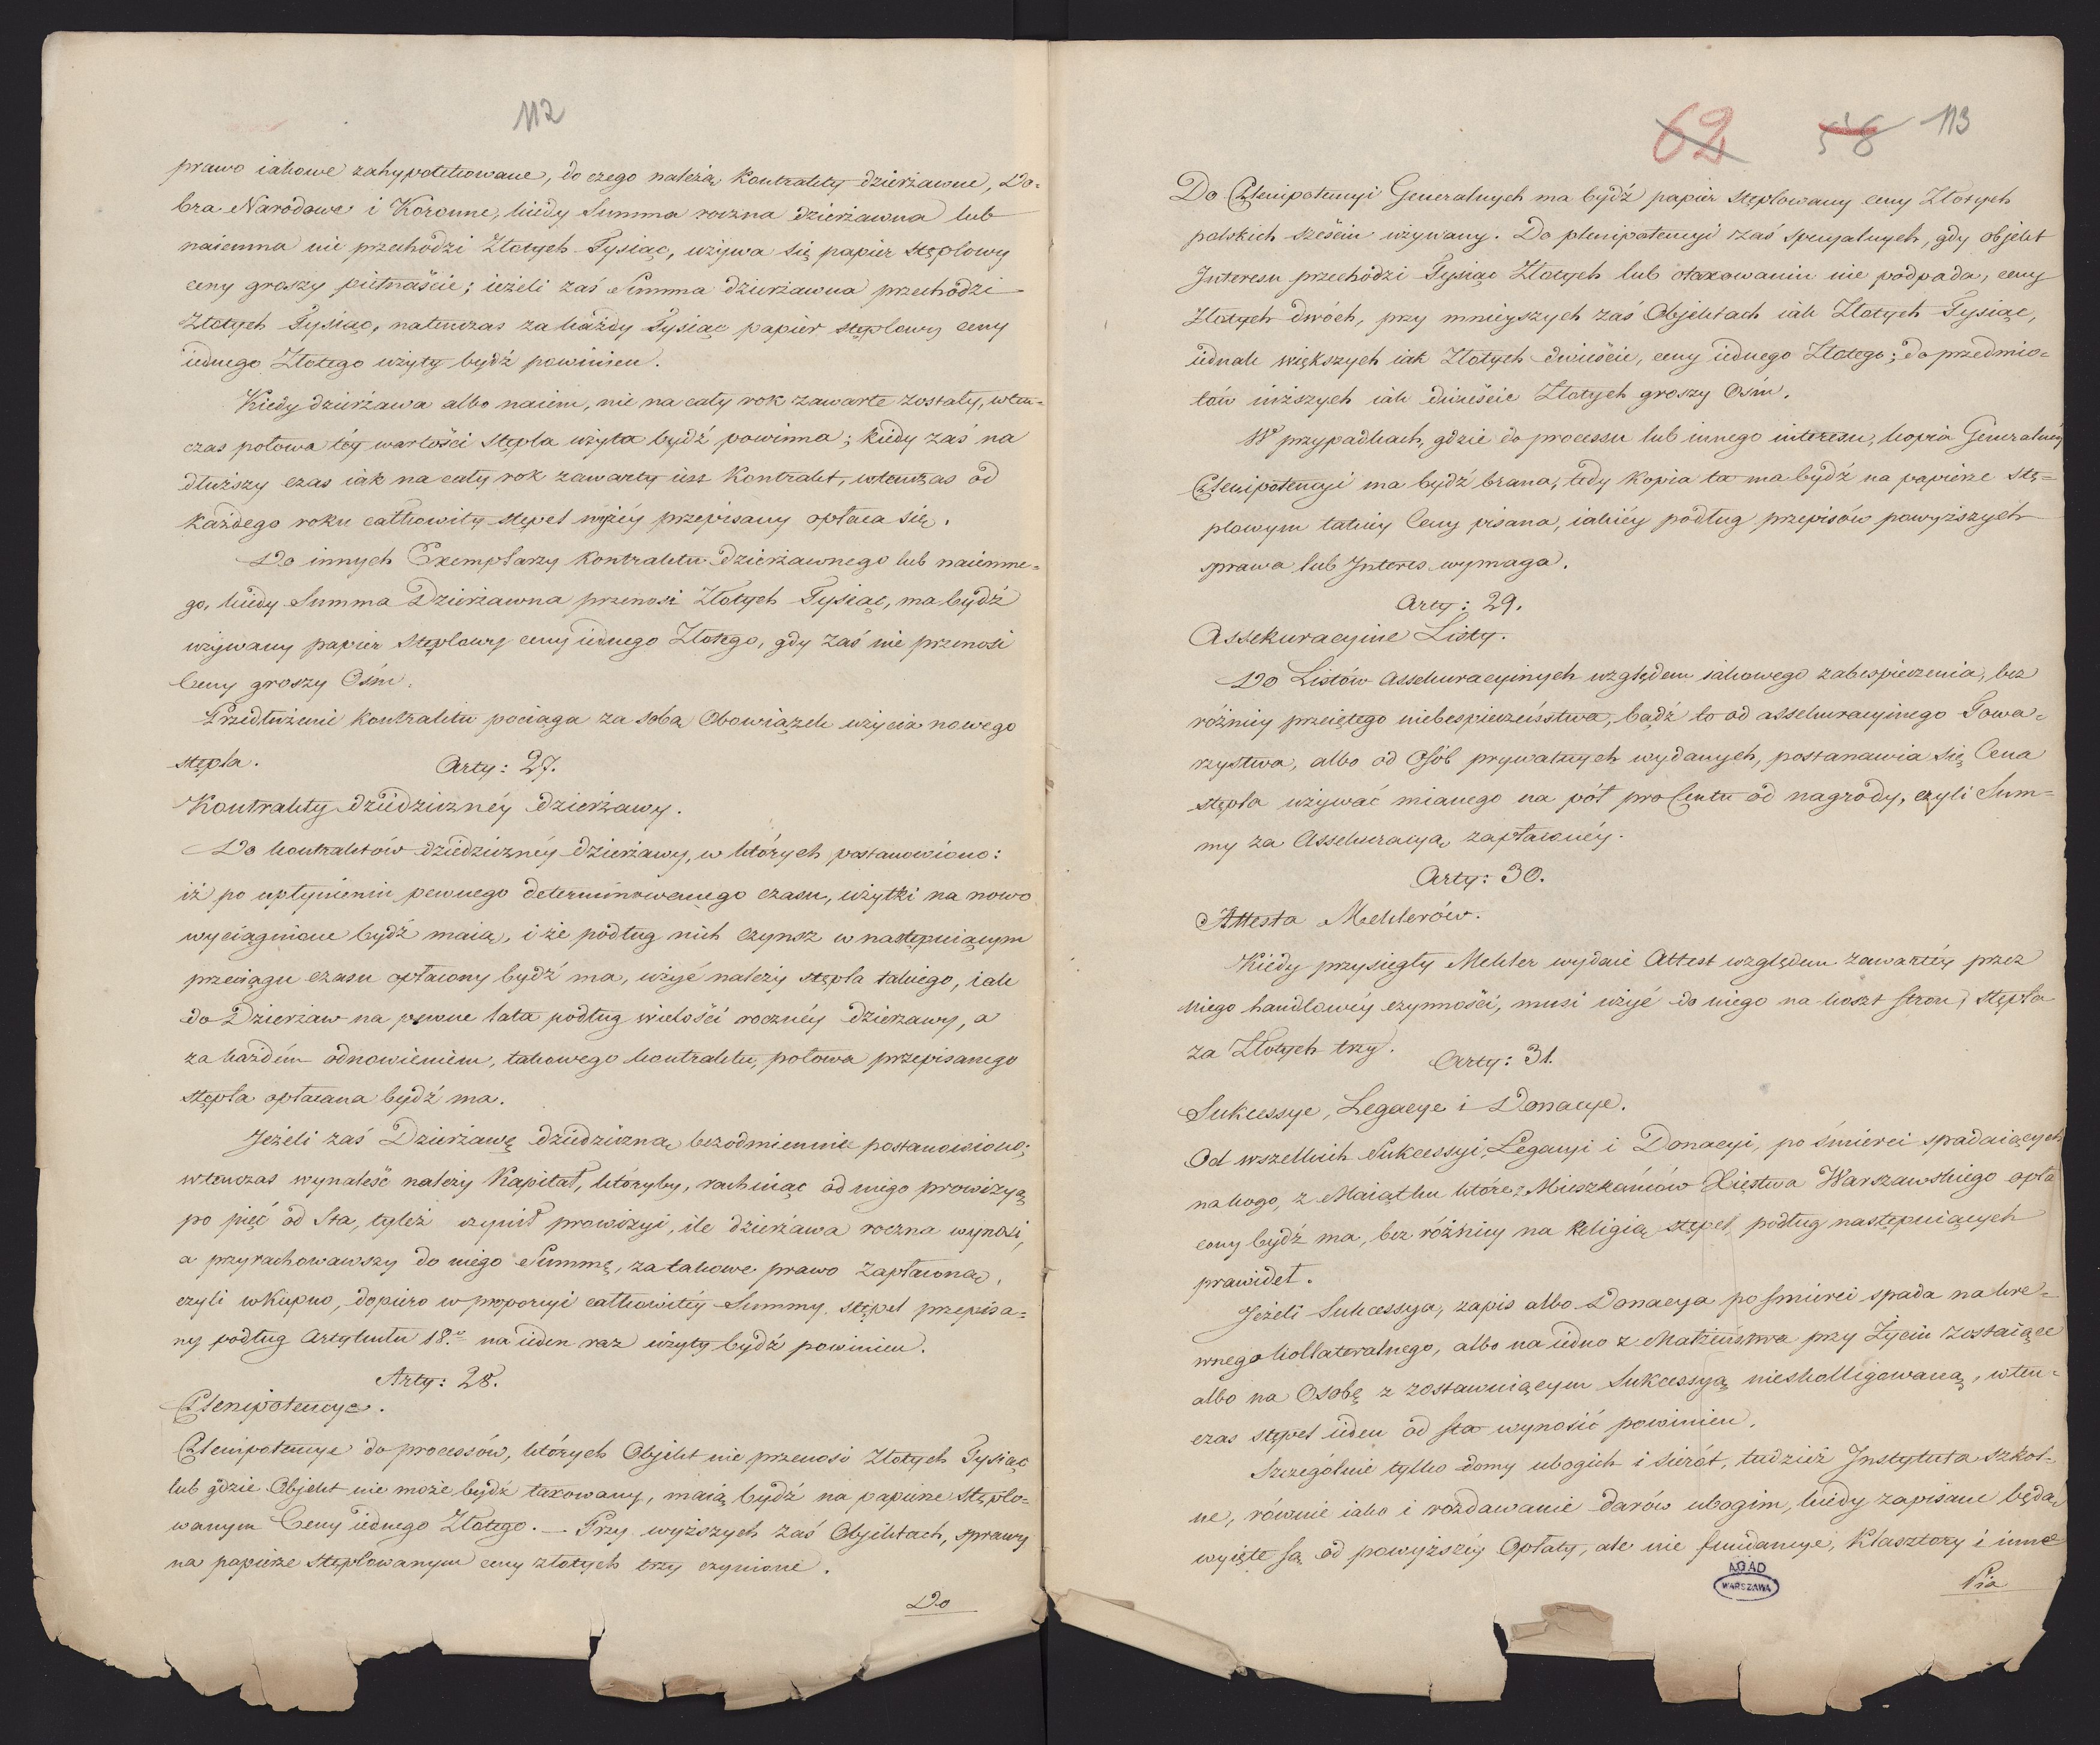 112
prawo iakowe zahypotekowane, do czego należą Kontrakty dzierżawne, Do=
bra Narodowe i Koronne, kiedy Summa roczna dzierżawna lub
naiemna nie przechodzi Złotych Tysiąc, używa się papier stęplowy
ceny groszy piętnaście; ieżeli zaś Summa dzierżawna przechodzi
Złotych Tysiąc, natenczas za każdy Tysiąc papier stęplowy ceny
iednego Złotego użyty bydź powinien.
Kiedy dzierżawa albo naiem, nie na cały rok zawarte zostały, wten=
czas połowa téy wartości stępla użyta bydź powinna; kiedy zaś na
dłuższy czas iak na cały rok zawarty iest Kontrakt, wtenczas od
każdego roku całkowity stępel wyżéy przepisany opłaca się.
Do innych Exemplarzy Kontraktu Dzierżawnego lub naiemne=
go, kiedy Summa Dzierżawna przenosi Złotych Tysiąc, ma bydź
używany papier stęplowy ceny iednego Złotego, gdy zaś nie przenosi
Ceny groszy Ośm.
Przedłużenie Kontraktu pociąga za sobą Obowiązek użycia nowego
stępla. Arty: 27.
Kontrakty dziedziczney dzierżawy.
Do kontraktów dziedziczney dzierżawy, w których postanowiono:
iż po upłynieniu pewnego determinowanego czasu, użytki na nowo
wyciągnione bydź maią, i że podług nich czynsz w następuiącym
przeciągu czasu opłacony bydź ma, użyć należy stępla takiego, iak
do Dzierżaw na pewne lata podług wielości roczney dzierżawy, a
za każdém odnowieniem, takowego kontraktu, połowa przepisanego
stępla opłacana bydź ma.
Jeżeli zaś Dzierżawę dziedziczną bezodmiennie postanowiono;
wtenczas wynaleść należy Kapitał, któryby, rachuiąc od niego prowizyą
po pięć od Sta, tyleż czynił prowizyi, ile dzierżawa roczna wynosi,
a przyrachowawszy do niego Summę, za takowe prawo zapłaconą,
czyli wkupno, dopiero w proporcyi całkowitéy Summy stępel przepisa=
ny podług Artykułu 18.º na ieden raz użyty bydź powinien.
Arty: 28.
Plenipotencye.
Plenipotencye do processów, których Objekt nie przenosi Złotych Tysiąc
lub gdzie Objekt nie może bydź taxowany, maią bydź na papierze Stęplo=
wanym Ceny iednego Złotego. — Przy wyższych zaś Objektach, sprawy
na papierze stęplowanym ceny złotych trzy czynione.
Do
62 58 113
Do Plenipotencyi Generalnych ma bydź papier stęplowany ceny Złotych
polskich sześciu używany. Do plenipotencyi zaś specyalnych, gdy objekt
Interesu przechodzi Tysiąc Złotych lub otaxowaniu nie podpada, ceny
Złotych dwóch, przy mnieyszych zaś Objektach iak Złotych Tysiąc,
iednak większych iak Złotych dwieście, ceny iednego Złotego; do przedmio=
tów niższych iak dwieście Złotych groszy Ośm.
W przypadkach, gdzie do processu lub innego interesu, kopia Generalnéy
Plenipotencyi ma bydź brana, tedy Kopia ta ma bydź na papierze stę=
plowym takiéy Ceny pisana, iakiéy podług przepisów powyższych
sprawa lub Interes wymaga.
Arty: 29.
Assekuracyine Listy.
Do Listów Assekuracyinych względem iakowego zabespieczenia, bez
różnicy przeiętego niebespieczeństwa, bądź to od assekuracyinego Towa=
rzystwa, albo od Osób prywatnych wydanych, postanawia się Cena
stępla używać mianego na pół proCentu od nagrody, czyli Sum=
my za Assekuracyą zapłaconéy.
Arty: 30.
Attesta Meklerów.
Kiedy przysięgły Mekler wydaie Attest względem zawartéy przez
niego handlowéy czynności, musi użyć do niego na koszt stron, stępla
za Złotych trzy. Arty: 31.
Sukcessye, Legacye i Donacye.
Od wszelkich Sukcessyi, Legacyi i Donacyi, po śmierci spadaiących
na kogo, z Maiątku którego z Mieszkańców Xięstwa Warszawskiego opła
cony bydź ma, bez różnicy na Religią stępel, podług następuiących
prawideł.
Jeżeli Sukcessya, zapis albo Donacya po śmierci spada na kre=
wnego kollateralnego, albo na iedno z Małżeństwa przy życiu zostaiące
albo na Osobę z zostawuiącym Sukcessyą nieskolligowaną, wten=
czas stępel ieden od sta wynosić powinien.
Szczególnie tylko domy ubogich i sierót, tudzież Instytuta szkol=
ne, równie iako i rozdawanie darów ubogim, kiedy zapisane będą,
wyięte są od powyższéy Opłaty, ale nie fundacye, Klasztory i inne
Pia
AGAD
WARSZAWA